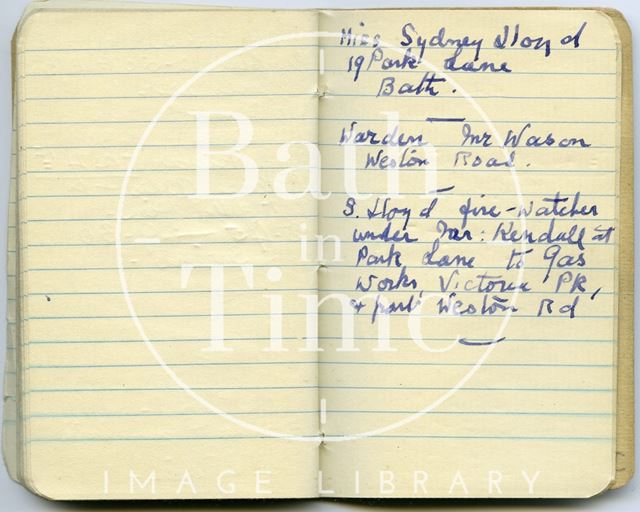 Miss Sydney Lloyd
19 Park Lane
Bath.
Warden Mr Wason
Weston Road.
S. Lloyd fire-watcher
under Mr: Kendall at
Park Lane to Gas
Works, Victoria PK,
& part Weston Rd
Bath
in
Time
IMAGE LIBRARY